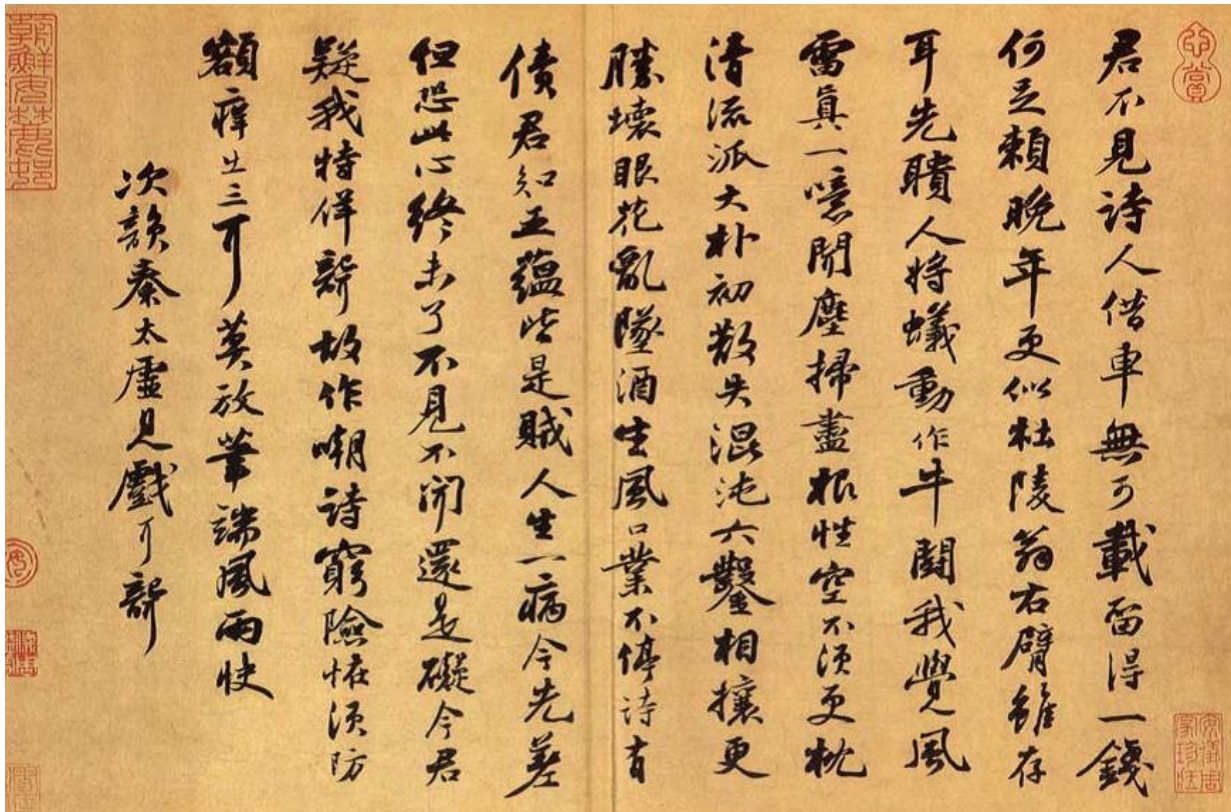 君不見詩人借車無可載留得一錢
何足賴晚年更似杜陵翁右臂雖存
耳先聵人將蟻動作牛鬬我覺風
雷真一噫聞塵掃盡根性空不須更枕
清流派大朴初散失混沌六鑿相攘更
勝壞眼花亂墜酒生風口業不停詩有
債君知五蘊皆是賊人生一病今先差
但恐此心終未了不見不聞還是礙今君
疑我特佯聾故作嘲詩窮險怪須防
額痒出三耳莫放筆端風雨快
次韻秦太虛見戲耳聾
心賞
安儀周家珍藏